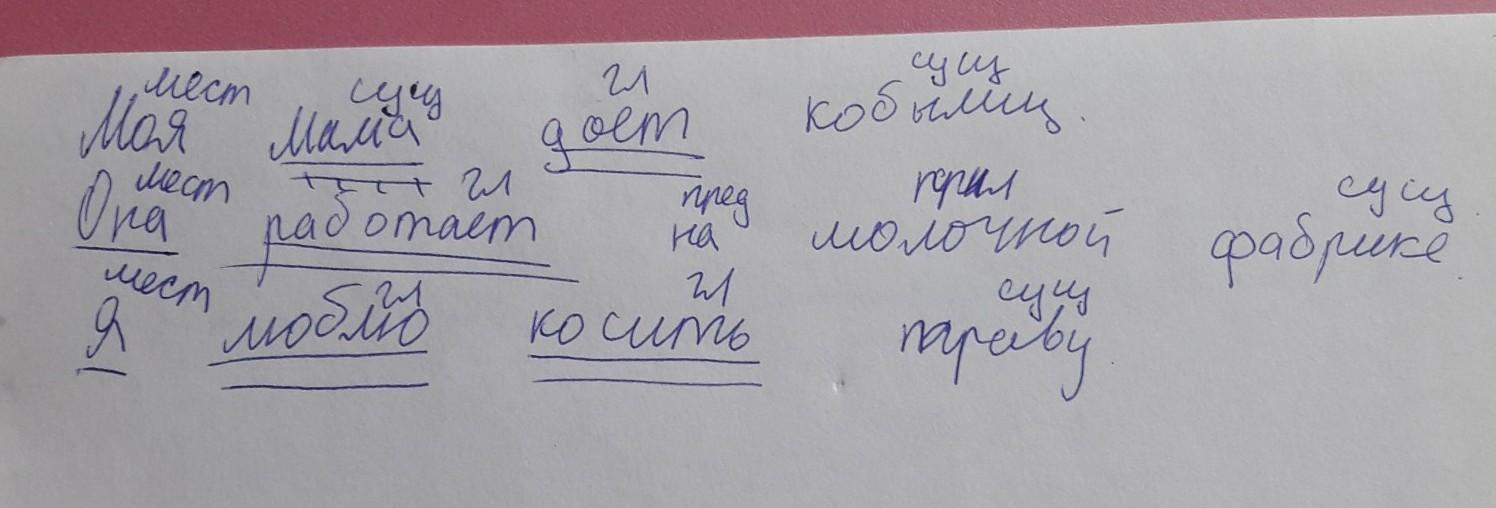 мест сущ гл сущ
Моя мама доет кобылиц.
мест гл пред прил сущ
Она работает на молочной фабрике.
мест гл гл сущ
Я люблю косить параву